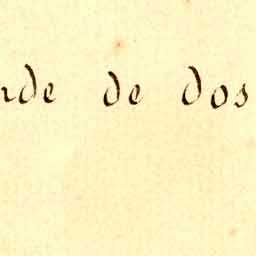 nde de dos